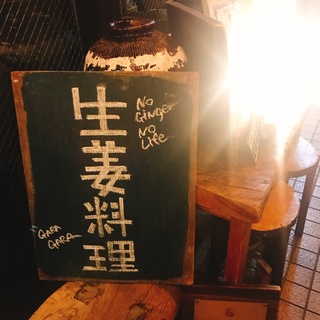 生姜料理
No
GINGER
No
Life
"GARA
GARA"